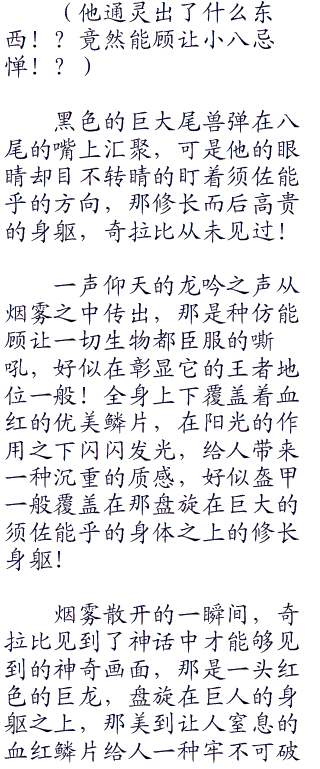 （他通灵出了什么东
西！？竟然能顾让小八忌
惮！？）
黑色的巨大尾兽弹在八
尾的嘴上汇聚，可是他的眼
睛却目不转睛的盯着须佐能
乎的方向，那修长而后高贵
的身躯，奇拉比从未见过！
一声仰天的龙吟之声从
烟雾之中传出，那是种仿能
顾让一切生物都臣服的嘶
吼，好似在彰显它的王者地
位一般！全身上下覆盖着血
红的优美鳞片，在阳光的作
用之下闪闪发光，给人带来
一种沉重的质感，好似盔甲
一般覆盖在那盘旋在巨大的
须佐能乎的身体之上的修长
身躯！
烟雾散开的一瞬间，奇
拉比见到了神话中才能够见
到的神奇画面，那是一头红
色的巨龙，盘旋在巨人的身
躯之上，那美到让人窒息的
血红鳞片给人一种牢不可破